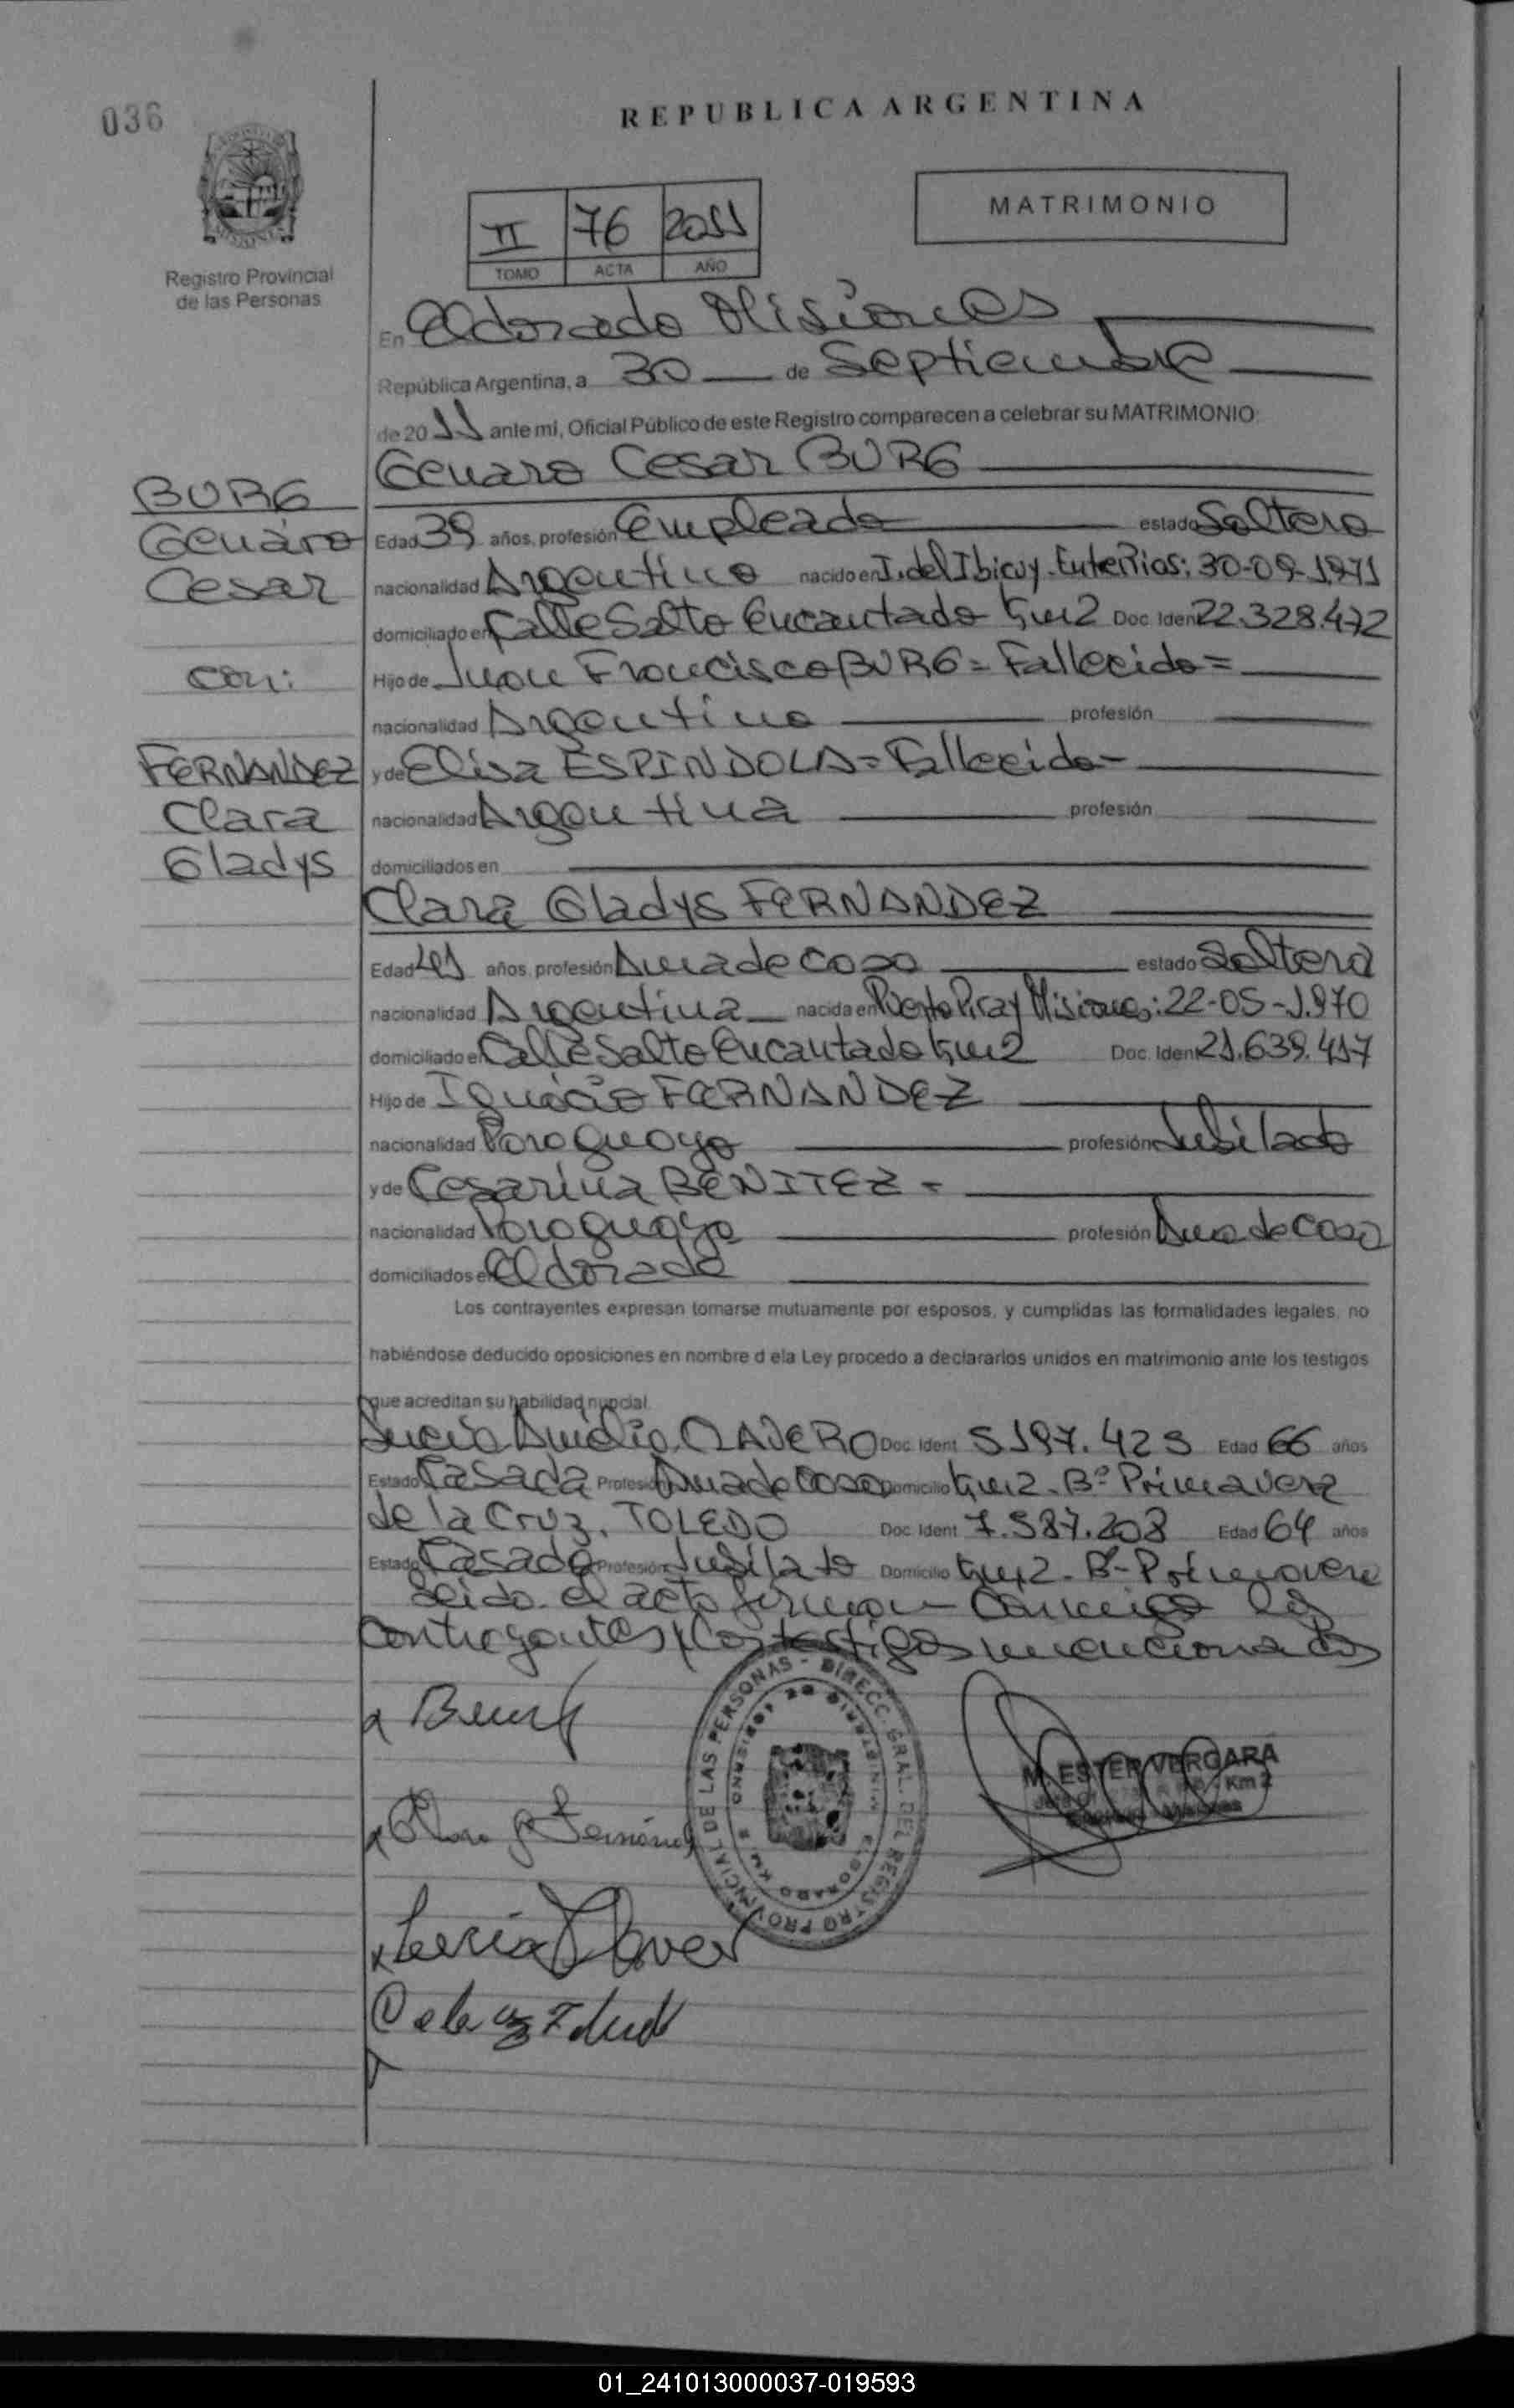 036
REPUBLICA ARGENTINA
MATRIMONIO
II 76 2011
TOMO ACTA AÑO
Registro Provincial
de las Personas
En Eldorado Misiones
República Argentina, a 30 de Septiembre
de 2011 ante mi, Oficial Público de este Registro comparecen a celebrar su MATRIMONIO:
Genaro Cesar BURG
BURG
Genaro
Cesar
con:
FERNANDEZ
Clara
Gladys
Edad 39 años, profesión Empleado estado Soltero
nacionalidad Argentino nacido en I. del Ibicuy - Entre Rios: 30-09-1971
domiciliado en Calle Salto Encantado Km 2 Doc. Iden 22.328.472
Hijo de Juan Francisco BURG = Fallecido =
nacionalidad Argentino profesión
y de Elisa ESPINDOLA = Fallecida -
nacionalidad Argentina profesión
domiciliados en
Clara Gladys FERNANDEZ
Edad 41 años, profesión Ama de Casa estado Soltera
nacionalidad Argentina nacida en Puerto Piray Misiones: 22-05-1.970
domiciliado en Calle Salto Encantado Km 2 Doc. Iden 21.639.417
Hijo de Ignacio FERNANDEZ
nacionalidad Paraguayo profesión Jubilado
y de Cesarina BENITEZ =
nacionalidad Paraguaya profesión Ama de Casa
domiciliados en Eldorado
Los contrayentes expresan tomarse mutuamente por esposos, y cumplidas las formalidades legales, no
habiéndose deducido oposiciones en nombre d ela Ley procedo a declararlos unidos en matrimonio ante los testigos
que acreditan su habilidad nupcial.
Lucia CLAVERO Doc. Ident 5.197.425 Edad 66 años
Estado Casada Profesión Ama de Casa Domicilio Km 2 - Bº Primavera
de la Cruz, TOLEDO Doc. Ident 7.587.208 Edad 64 años
Estado Casado Profesión Jubilado Domicilio Km 2 - Bº - Primavera
Leido el acto firman Conmigo los
Contrayentes y los testigos mencionados
M. ESTER VERGARA
Km 2
Eldorado - Misiones
DIRECC. GRAL. DEL REGISTRO PROVINCIAL DE LAS PERSONAS -
MINISTERIO DE GOBIERNO
ELDORADO KM 2
01_241013000037-019593